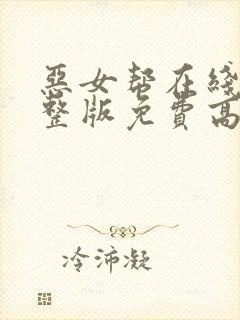 惡女幫在綫
整版免費高
冷沛凝